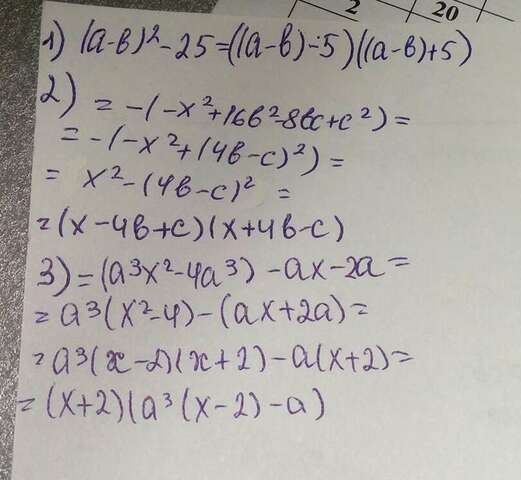 2 20
1) (a-в)²-25=((a-в)-5)((a-в)+5)
2) = -(-x²+16в²-8вc+c²)=
= -(-x²+(4в-c)²)=
= x²-(4в-c)² =
=(x-4в+c)(x+4в-c)
3)=(a³x²-4a³)-ax-2a=
= a³(x²-4)-(ax+2a)=
= a³(x-2)(x+2)-a(x+2)=
= (x+2)(a³(x-2)-a)